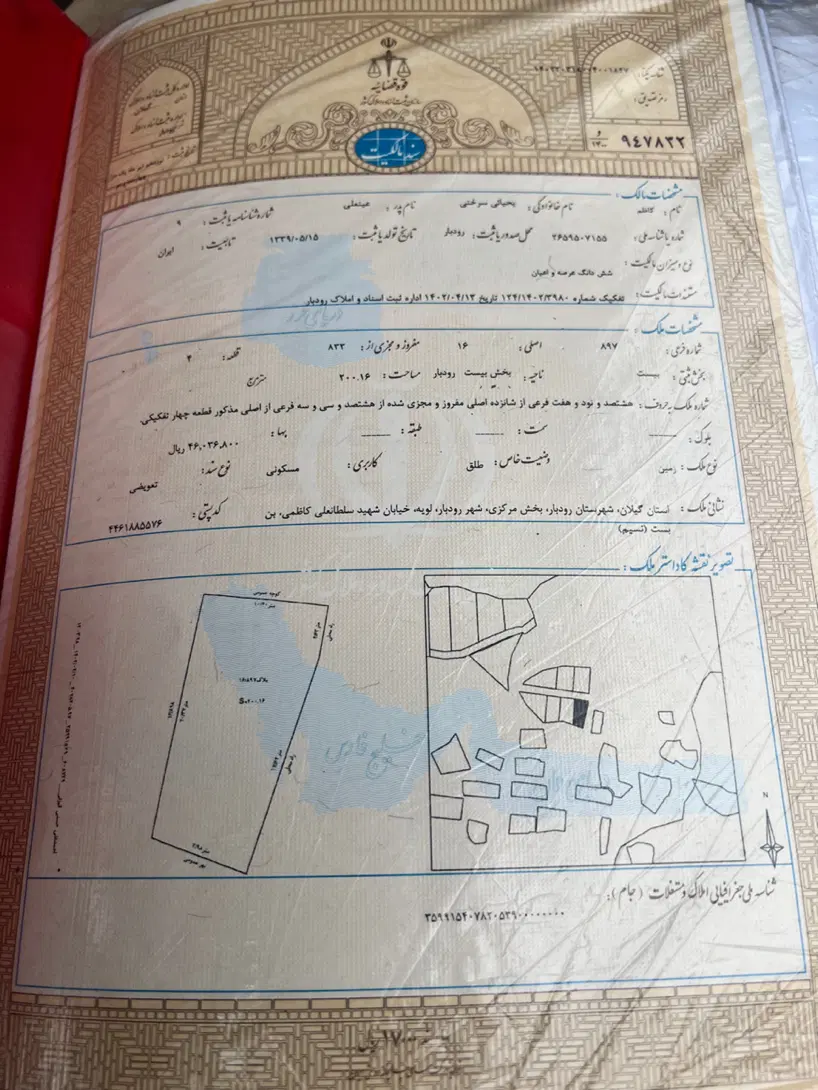 قوه قضائیه
سازمان ثبت اسناد و املاک کشور
سند مالکیت
شماره یکتا:
رمز تصدیق:
۹۴۷۸۲۲
و
۱۴۰۰
مشخصات مالک:
نام: کاظم نام خانوادگی: یحیائی سرختی نام پدر: عینعلی شماره شناسنامه یا ثبت: ۹
شماره یا شناسه ملی: ۲۶۵۹۵۰۷۱۵۵ محل صدور یا ثبت: رودبار تاریخ تولد یا ثبت: ۱۳۳۹/۰۵/۱۵ تابعیت: ایران
نوع و میزان مالکیت: شش دانگ عرصه و اعیان
مستندات مالکیت: تفکیک شماره ۱۲۴/۱۴۰۲/۳۹۸۰ تاریخ ۱۴۰۲/۰۴/۱۳ اداره ثبت اسناد و املاک رودبار
مشخصات ملک:
شماره فرعی: ۸۹۷ اصلی: ۱۶ مفروز و مجزی از: ۸۳۳ قطعه: ۴
بخش ثبتی: بیست ناحیه: بخش بیست رودبار مساحت: ۲۰۰.۱۶ مترمربع
شماره ملک به حروف: هشتصد و نود و هفت فرعی از شانزده اصلی مفروز و مجزی شده از هشتصد و سی و سه فرعی از اصلی مذکور قطعه چهار تفکیکی.
بلوک: ____ سمت: ____ طبقه: ____ بها: ۴۶,۰۳۶,۸۰۰ ریال
نوع ملک: زمین وضعیت خاص: طلق کاربری: مسکونی نوع سند: تعویضی
نشانی ملک: استان گیلان، شهرستان رودبار، بخش مرکزی، شهر رودبار، لویه، خیابان شهید سلطانعلی کاظمی، بن کدپستی: ۴۴۶۱۸۸۵۵۷۶
بست (نسیم)
تصویر نقشه کاداستر ملک:
کوچه عمومی
راه محلی
S=۲۰۰.۱۶
راه محلی
نهر عمومی
خلیج فارس
N
شناسه ملی جغرافیایی املاک و مستغلات (جام):
۳۵۹۹۱۵۴۰۷۸۲۰۵۳۹۰۰۰۰۰۰۰۰